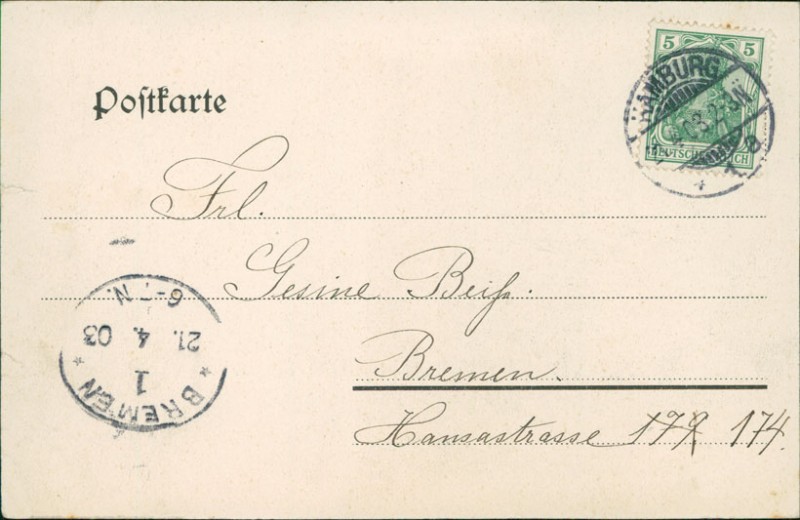 Postkarte
5 5
DEUTSCHES REICH
HAMBURG
4.03. 2-3N
* 1 a
Frl.
Gesine Beiß.
Bremen.
Hansastrasse 179 174.
6-7 N.
21. 4. 03
1
* BREMEN *